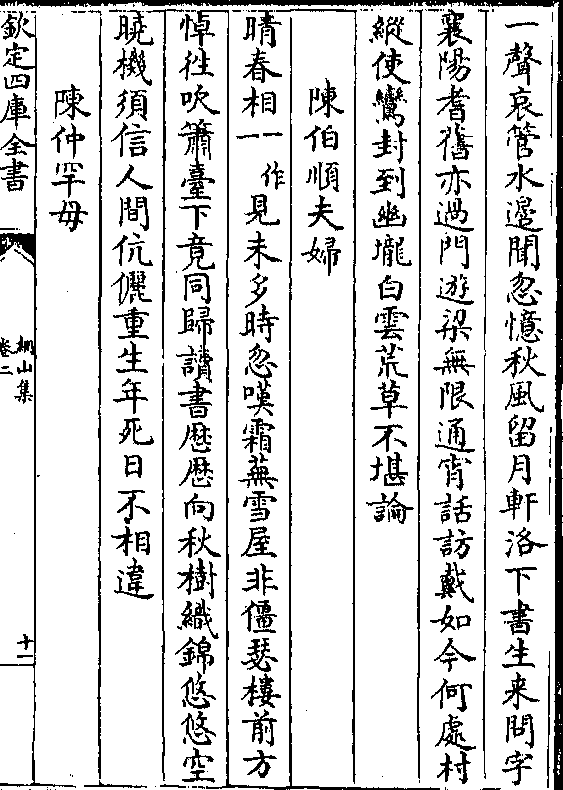 一聲哀管水邉聞忽憶秋風留月軒洛下書生来問字
襄陽耆舊亦過門遊梁無限通宵話訪戴如今何處村
縱使鸞封到幽壠白雲荒草不堪論
陳伯順夫婦
晴春相一一作見未多時忽嘆霜蕪雪屋非僵瑟樓前方
悼徃吹簫臺下竟同歸讀書歴歴向秋樹織錦悠悠空
曉機須信人間伉儷重生年死日不相違
陳仲罕母
欽定四庫全書
桐山集
卷二
十一